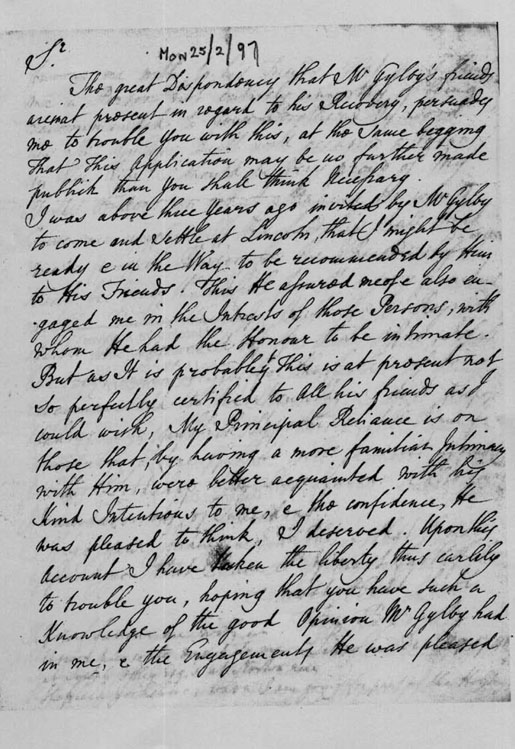 Sr.
MON 25/2/97
The great Despondency that Mr Gylby's friends
are in at present in regard to his Recovery, persuades
me to trouble you with this, at the same begging
that this Application may be no further made
publick than you shall think Necessary.
I was above three years ago invited by Mr Gylby
to come and settle at Lincoln, that I might be
ready & in the Way to be recommended by Him
to His Friends. This He assured me of & also en-
gaged me in the Intrests of those Persons, with
whom He had the Honour to be intimate.
But as It is probable, This is at present not
so perfectly certified to All his friends as I
could wish, My Principal Reliance is on
those that, by having a more familiar Intimacy
with Him, were better acquainted with his
Kind Intentions to me, & the confidence, He
was pleased to think, I deserved. Upon this
Account I have taken the liberty thus earlily
to trouble you, hoping that you have such a
Knowledge of the good Opinion Mr Gylby had
in me, & the Engagements He was pleased